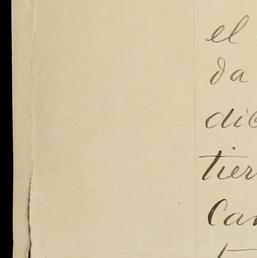 el
da
dic
tier
Can